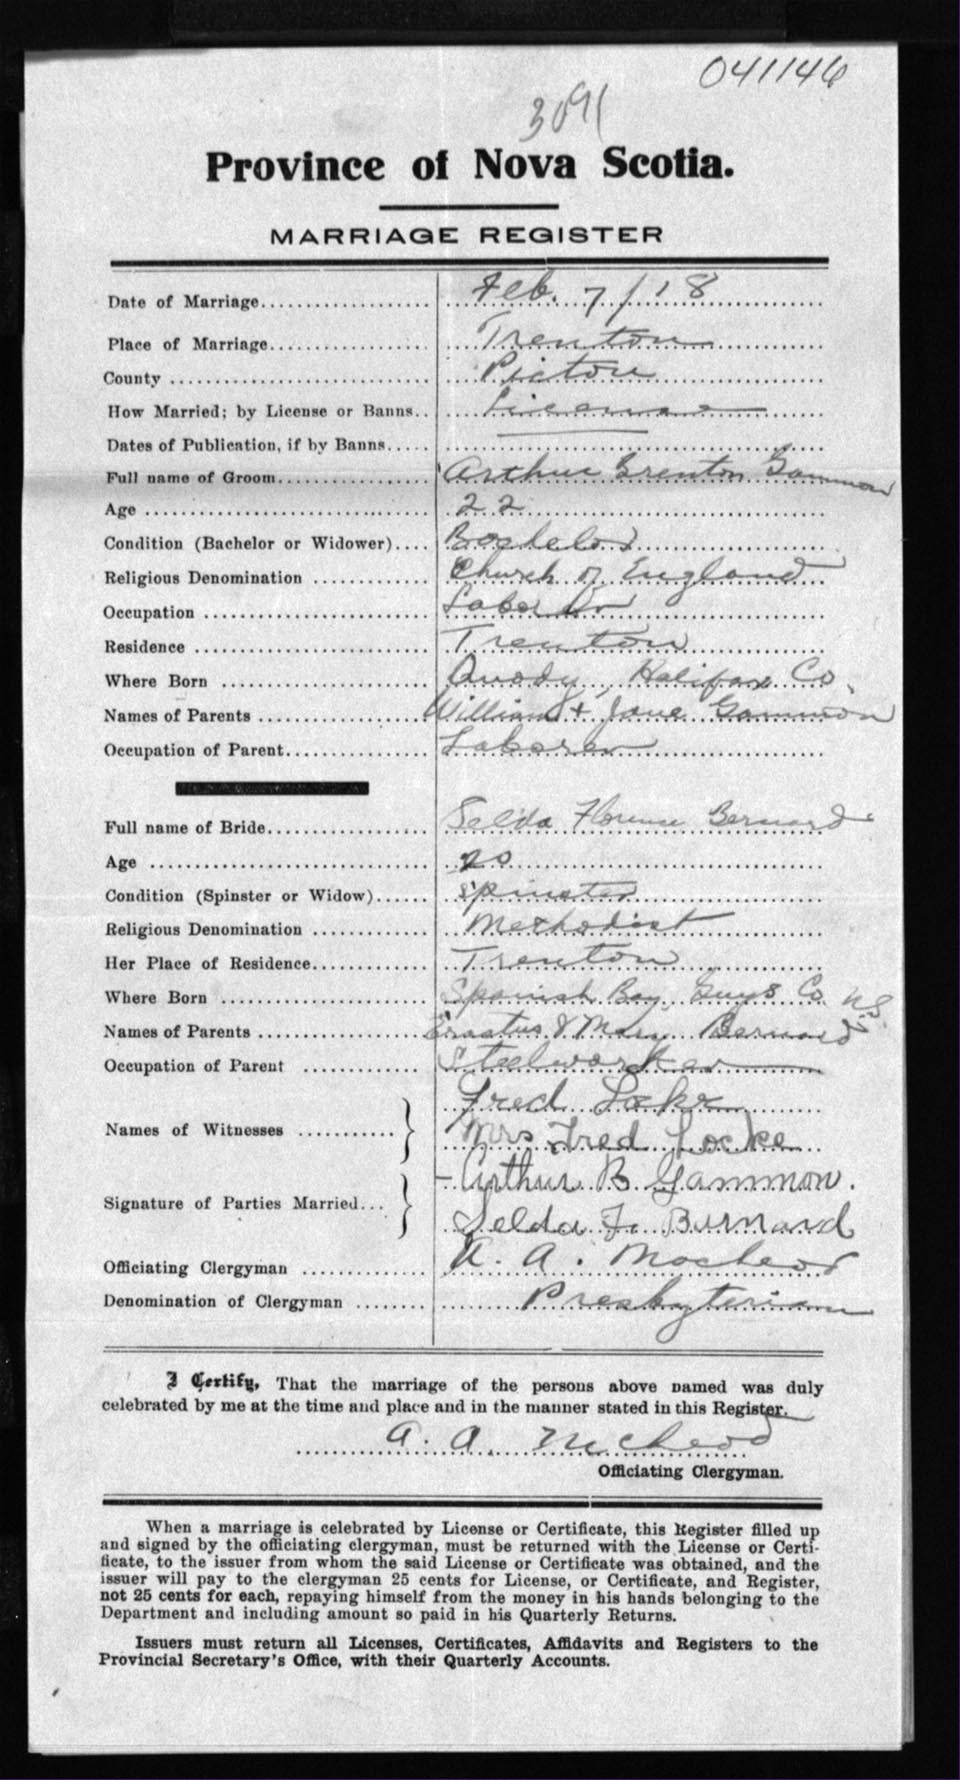 041146
3091
Province of Nova Scotia.
MARRIAGE REGISTER
Date of Marriage Feb. 7/18
Place of Marriage Trenton
County Pictou
How Married; by License or Banns License
Dates of Publication, if by Banns
Full name of Groom Arthur Brenton Gammon
Age 22
Condition (Bachelor or Widower) Bachelor
Religious Denomination Church of England
Occupation Laborer
Residence Trenton
Where Born Quody, Halifax Co.
Names of Parents William & Jane Gammon
Occupation of Parent Laborer
Full name of Bride Selda Florence Bernard
Age 20
Condition (Spinster or Widow) Spinster
Religious Denomination Methodist
Her Place of Residence Trenton
Where Born Spanish Bay, Guys Co. N.S.
Names of Parents Erastus & Mary Bernard
Occupation of Parent Steelworker
Names of Witnesses Fred Locke
Mrs Fred Locke
Signature of Parties Married Arthur B Gammon.
Selda F. Burnard
Officiating Clergyman A. A. MacLeod
Denomination of Clergyman Presbyterian
I Certify, That the marriage of the persons above named was duly
celebrated by me at the time and place and in the manner stated in this Register.
A. A. McLeod
Officiating Clergyman.
When a marriage is celebrated by License or Certificate, this Register filled up
and signed by the officiating clergyman, must be returned with the License or Certi-
ficate, to the issuer from whom the said License or Certificate was obtained, and the
issuer will pay to the clergyman 25 cents for License, or Certificate, and Register,
not 25 cents for each, repaying himself from the money in his hands belonging to the
Department and including amount so paid in his Quarterly Returns.
Issuers must return all Licenses, Certificates, Affidavits and Registers to the
Provincial Secretary's Office, with their Quarterly Accounts.